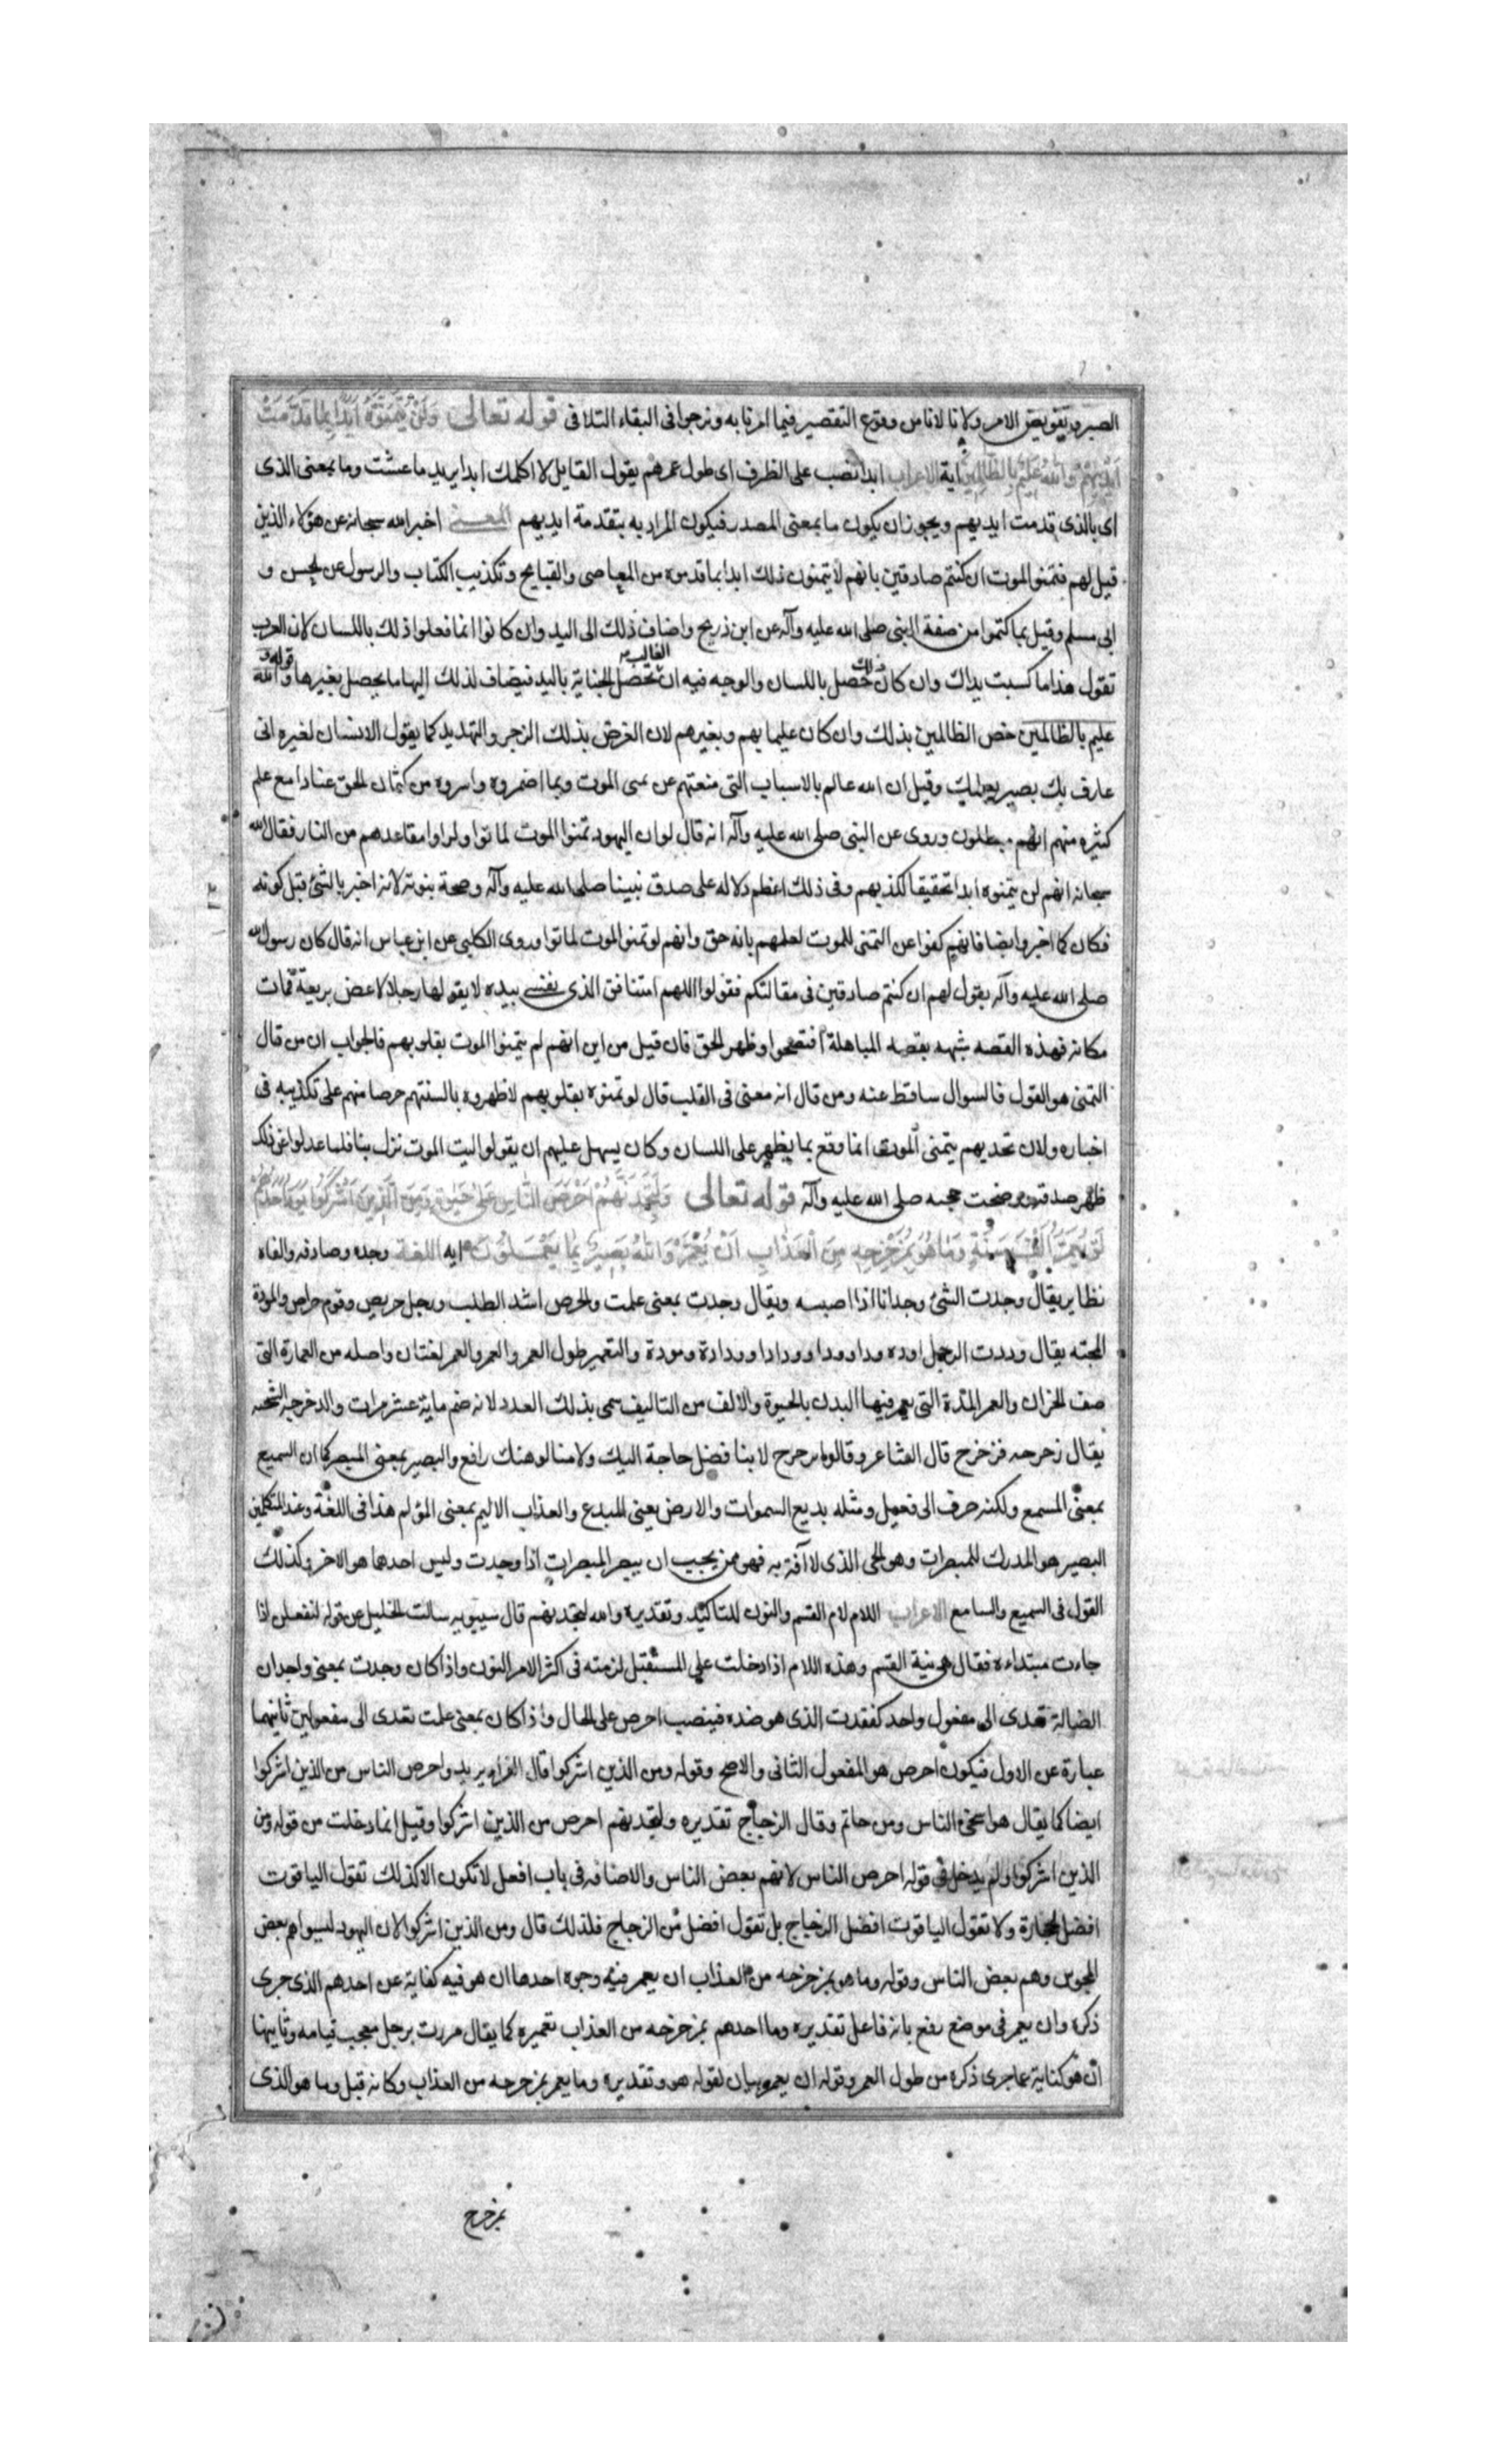 الصبر وتفويض الامر ولانا لا نامن وقوع التقصير فيما امرنا به ونرجوا فى البقاء التلافى قوله تعالى وَلَنْ يَتَمَنَّوْهُ اَبَدًا بِمَا قَدَّمَتْ
اَيْدِيهِمْ وَاللهُ عَلِيمٌ بِالظَّالِمِينَ اية الاعراب ابدا نصب على الظرف اى طول عمرهم يقول القايل لا اكلمك ابدا يريد ما عشت وما بمعنى الذى
اى بالذى قدمت ايديهم ويجوز ان يكون ما بمعنى المصدر فيكون المراد به بتقدمة ايديهم المعنى اخبر الله سبحانه عن هؤلاء الذين
قيل لهم فتمنوا الموت ان كنتم صادقين بانهم لا يتمنون ذلك ابدا بما قدموه من المعاصى والقبايح وتكذيب الكتاب والرسول عن الحسن و
ابى مسلم وقيل بما كتموا من صفة النبى صلى الله عليه وآله عن ابن جريح واضاف ذلك الى اليد وان كانوا انما فعلوا ذلك باللسان لان العرب
تقول هذا ما كسبت يداك وان كان ذلك حصل باللسان والوجه فيه ان الغالب تحصل الجناية باليد فيضاف لذلك اليها ما يحصل بغيرها وقوله والله
عليم بالظالمين خص الظالمين بذلك وان كان عليما بهم وبغيرهم لان الغرض بذلك الزجر والتهديد كما يقول الانسان لغيره انى
عارف بك بصير بعملك وقيل ان الله عالم بالاسباب التى منعتهم عن تمنى الموت وبما اضمروه واسروه من كتمان الحق عنادا مع علم
كثيره منهم انهم مبطلون وروى عن النبى صلى الله عليه وآله انه قال لو ان اليهود تمنوا الموت لماتوا ولراوا مقاعدهم من النار فقال الله
سبحانه انهم لن يتمنوه ابدا تحقيقا لكذبهم وفى ذلك اعظم دلاله على صدق نبينا صلى الله عليه وآله وصحة نبوته لانه اخبر بالشئ قبل كونه
فكان كما اخبر وايضا فانهم كفوا عن التمنى للموت لعلمهم بانه حق وانهم لو تمنوا الموت لماتوا وروى الكلبى عن ابن عباس انه قال كان رسول الله
صلى الله عليه وآله يقول لهم ان كنتم صادقين فى مقالتكم فقولوا اللهم امتنا فو الذى نفسى بيده لا يقولها رجل الا غص بريقه فمات
مكانه فهذه القصه شبهه بقصه المباهلة افتضحوا وظهر الحق فان قيل من اين انهم لم يتمنوا الموت بقلوبهم فالجواب ان من قال
التمنى هو القول فالسوال ساقط عنه ومن قال انه معنى فى القلب قال لو تمنوه بقلوبهم لاظهروه بالسنتهم حرصا منهم على تكذيبه فى
اخباره ولان تحديهم يتمنى الموت انما وقع بما يظهر على اللسان وكان يسهل عليهم ان يقولوا ليت الموت نزل بنا فلما عدلوا عن ذلك
ظهر صدقه ووضحت حجته صلى الله عليه وآله قوله تعالى وَلَتَجِدَنَّهُمْ اَحْرَصَ النَّاسِ عَلَى حَيٰوةٍ وَمِنَ الَّذِينَ اَشْرَكُوا يَوَدُّ اَحَدُهُمْ
لَوْ يُعَمَّرُ اَلْفَ سَنَةٍ وَمَا هُوَ بِمُزَحْزِحِهِ مِنَ الْعَذَابِ اَنْ يُعَمَّرَ وَاللهُ بَصِيرٌ بِمَا يَعْمَلُونَ ايه اللغة وجده وصادفه والفاه
نظاير يقال وجدت الشئ وجدانا اذا اصبسه ويقال وجدت بمعنى علمت والحرص اشد الطلب ورجل حريص وقوم حراص والمودة
المحبه يقال وددت الرجل اوده ودا وودا وودادا وودادة ومودة والتعمير طول العمر والعمر والعمر لغتان واصله من العمارة التى
ضد الخراب والعمر المدة التى يعمر فيها البدن بالحيوة والالف من التاليف سمى بذلك العدد لانه ضم ماية عشر مرات والزحزحه التنحيه
يقال زحزحه فتزحزح قال الشاعر وقالوا تزحزح لا بنا فضل حاجة اليك ولا منا لوهنك رافع والبصير بمعنى المبصر كما ان السميع
بمعنى المسمع ولكنه صرف الى فعيل ومثله بديع السموات والارض بمعنى المبدع والعذاب الاليم بمعنى المؤلم هذا فى اللغة وعند المتكلمين
البصير هو المدرك للمبصرات وهو الحى الذى لا آفة به فهو ممن يجب ان يبصر المبصرات اذا وجدت وليس احدهما هو الاخر وكذلك
القول فى السميع والسامع الاعراب اللام لام القسم والنون للتاكيد وتقديره والله لتجدنهم قال سيبويه سالت الخليل عن قوله لتفعلن اذا
جاءت مبتداءه فقال هى نية القسم وهذه اللام اذا دخلت على المستقبل لزمته فى اكثر الامر النون واذا كان وجدت بمعنى وجدان
الضالة تعدى الى مفعول واحد كفقدت الذى هو ضده فينصب احرص على الحال واذا كان بمعنى علمت تعدى الى مفعولين ثانيهما
عبارة عن الاول فيكون احرص هو المفعول الثانى والاصح وقوله ومن الذين اشركوا قال الفراء يريد واحرص الناس من الذين اشركوا
ايضا كما يقال هو اسخى الناس ومن حاتم وقال الزجاج تقديره ولتجدنهم احرص من الذين اشركوا وقيل انما دخلت من قوله ومن
الذين اشركوا ولم يدخل فى قوله احرص الناس لانهم بعض الناس والاضافه فى باب افعل لا تكون الا كذلك تقول الياقوت
افضل الحجارة ولا تقول الياقوت افضل الزجاج بل تقول افضل من الزجاج فلذلك قال ومن الذين اشركوا لان اليهود ليسوا هم بعض
المجوس وهم بعض الناس وقوله وما هو بمزحزحه من العذاب ان يعمر فيه وجوه احدها ان هو فيه كفاية عن احدهم الذى جرى
ذكره وان يعمر فى موضع رفع بانه فاعل تقديره وما احدهم بمزحزحه من العذاب تعميره كما يقال مررت برجل معجب قيامه وثانيها
ان هو كناية عما جرى ذكره من طول العمر وقوله ان يعمر بيان لقوله هو وتقديره وما يعمر بمزحزحه من العذاب وكانه قيل وما هو الذى
بمزحزح